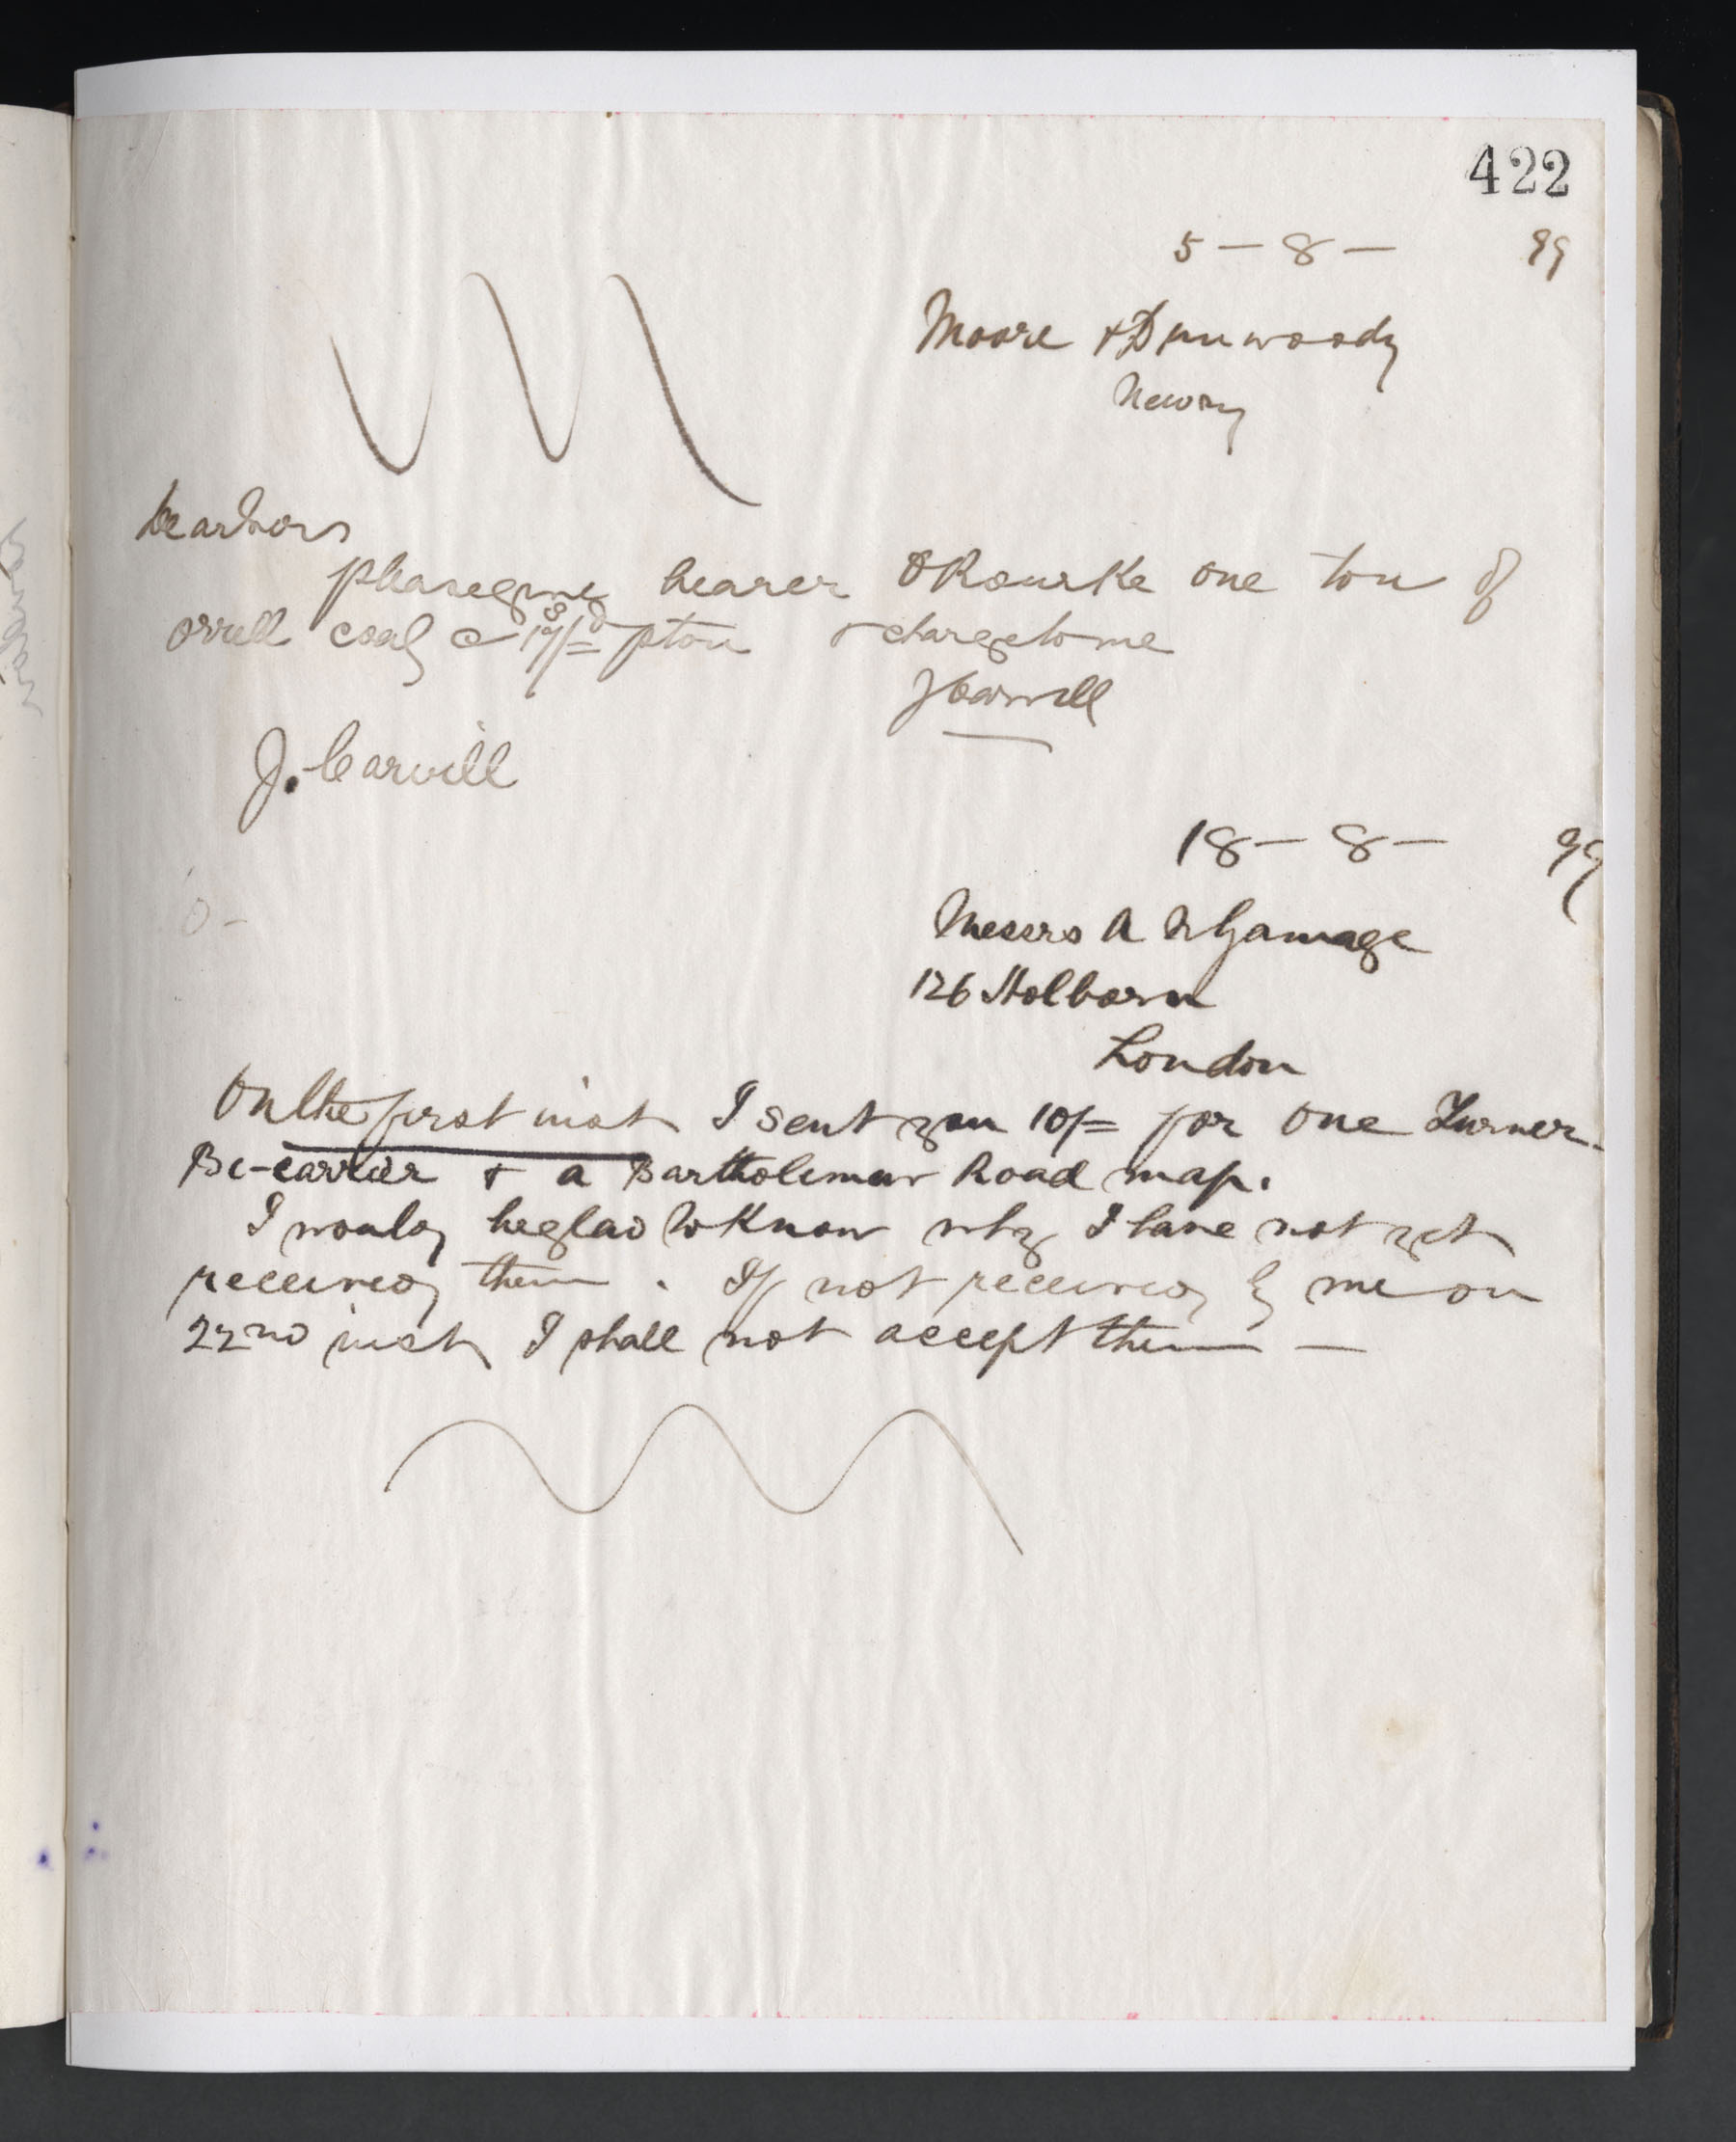 422
5 - 8 - 99
Moore & Dunwoody
Newry
Dear Sirs
please give bearer O Rourke one ton of
orrell coal @ pton & charge to me
J Carvill
J. Carvill
18 - 8 - 99
Messrs A W Gamage
126 Holborn
London
On the first inst I sent you 10/= for one Turner
Bi-carrier & a Bartholemew Road map.
I would be glad to know why I have not yet
received them. If not received by me on
22nd inst I shall not accept them —